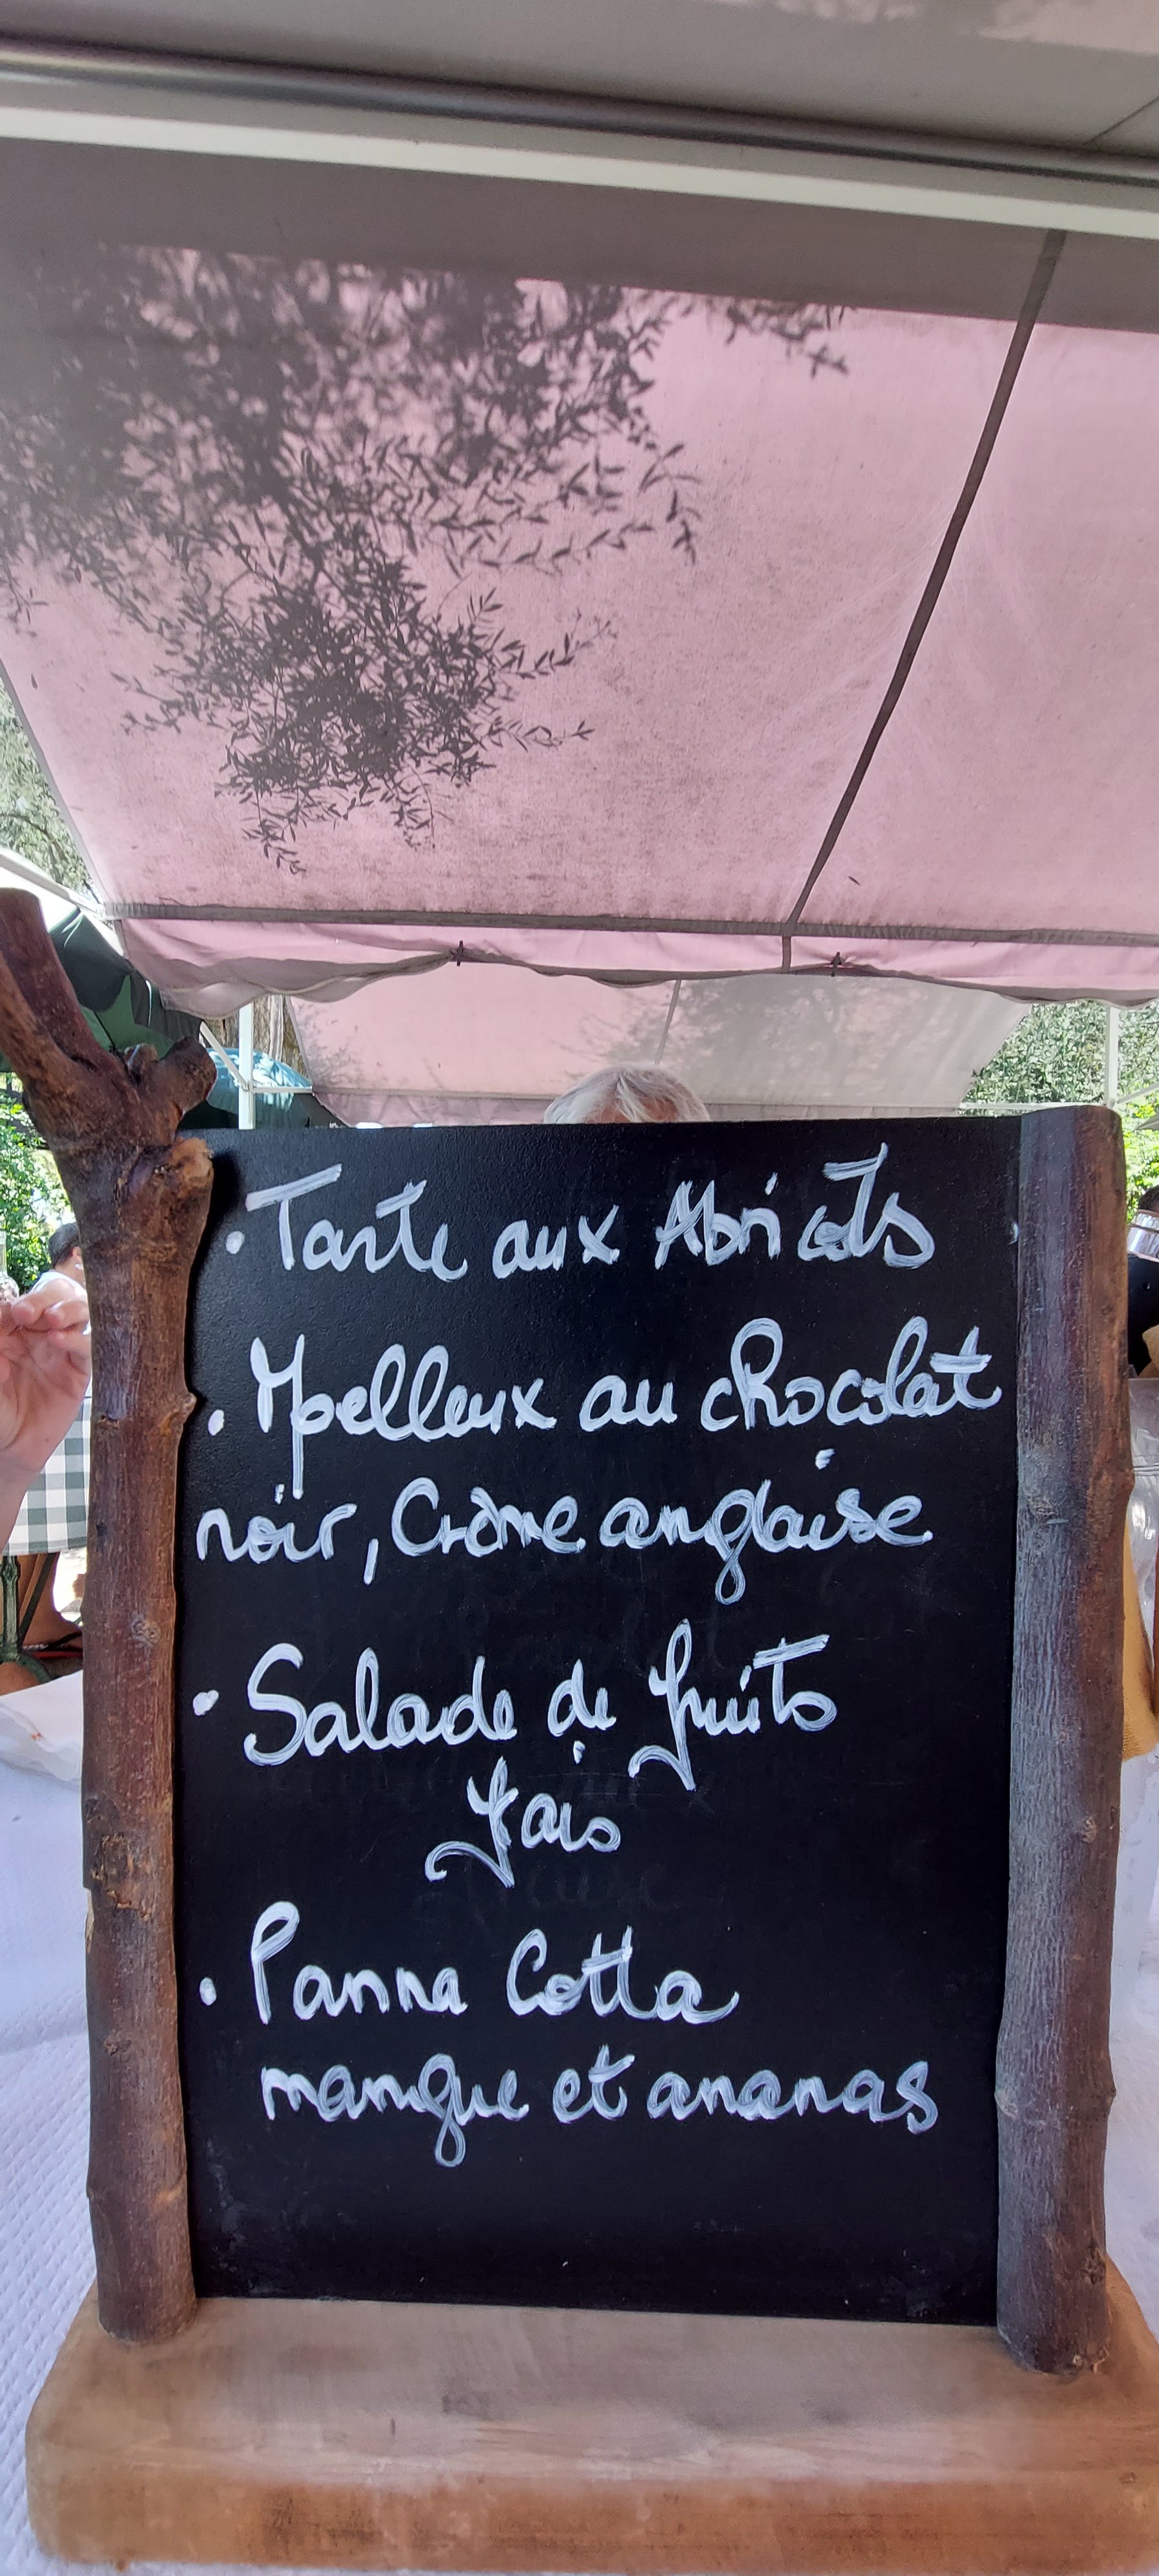 • Tarte aux Abricots
• Moelleux au chocolat
noir, Crème anglaise
• Salade de fruits
frais
• Panna Cotta
mangue et ananas